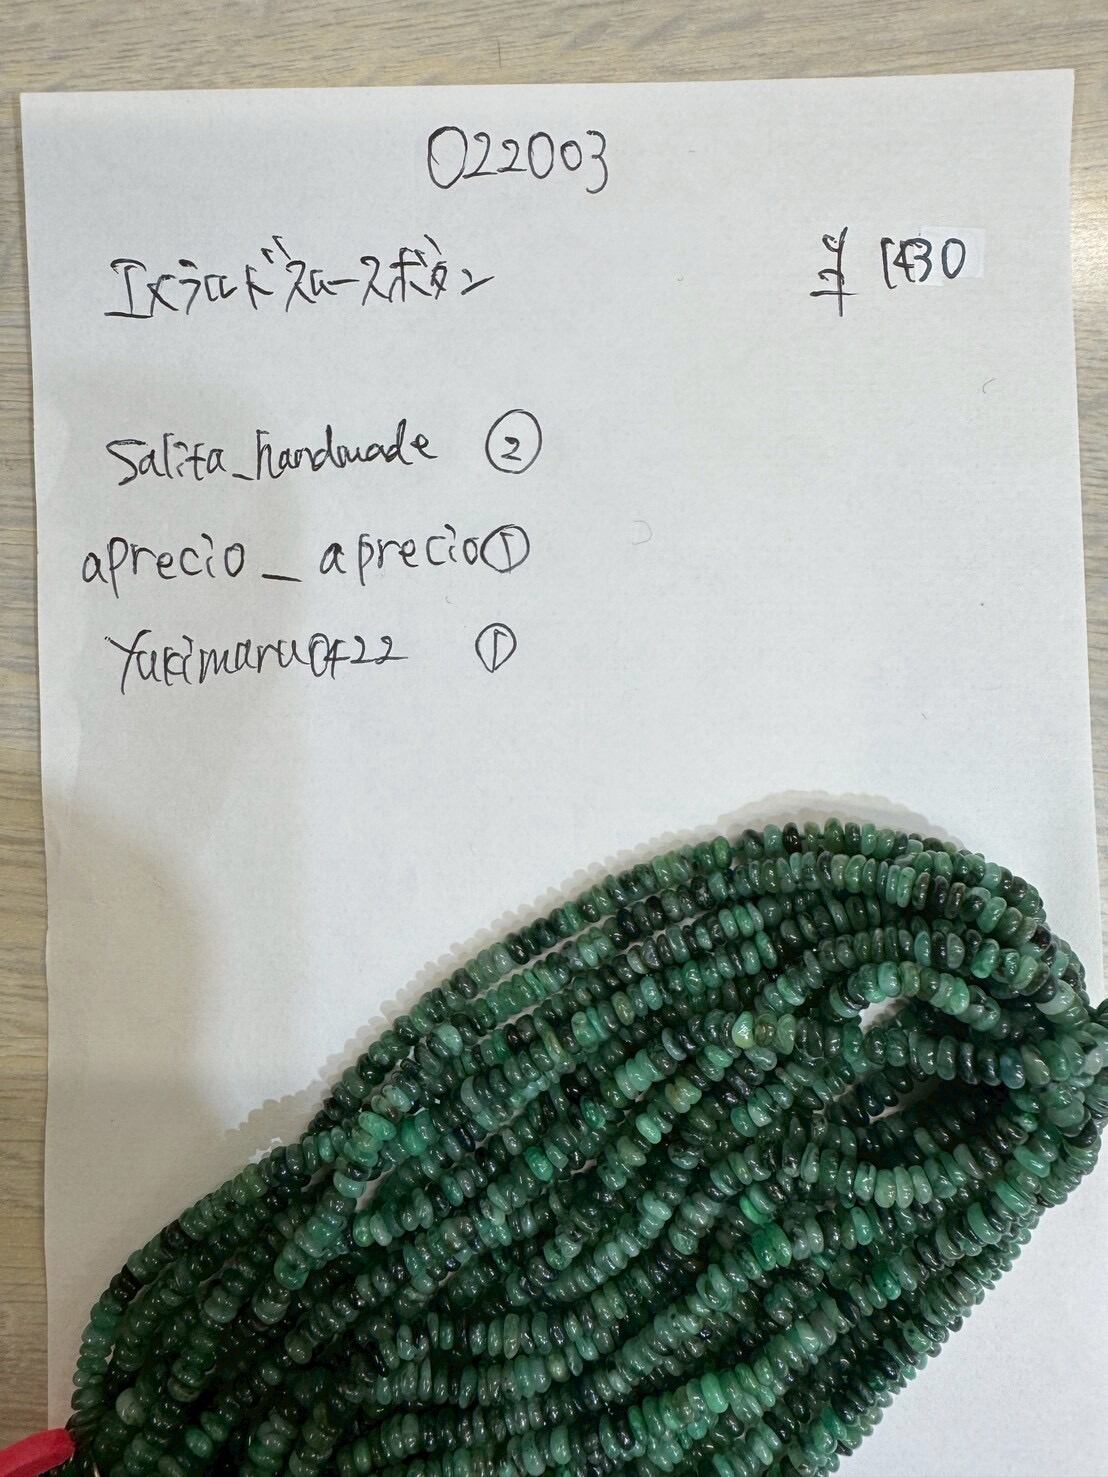 022003
エメラルドスムースボタン ¥1430
Salita_handmade ②
aprecio_aprecio ①
Yukimaru0422 ①